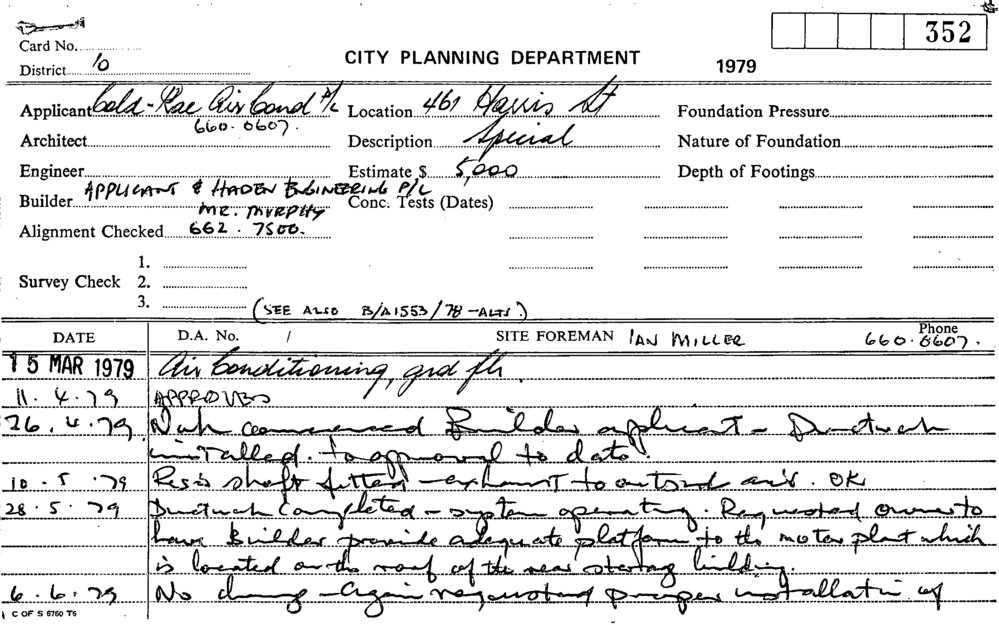 352
Card No.
District 10
CITY PLANNING DEPARTMENT
1979
Applicant Cold-Rac Air Cond P/L
660.0607.
Location 461 Harris St
Foundation Pressure
Architect
Description Special
Nature of Foundation
Engineer
Estimate $ 5,000
Depth of Footings
Builder APPLICANT & HADEN ENGINEERING P/L
MR. MURPHY
Conc. Tests (Dates)
Alignment Checked 662.7500.
Survey Check
1.
2.
3.
(SEE ALSO B/A1553/78 - ALTS.)
DATE
D.A. No. /
SITE FOREMAN IAN MILLER
Phone
660.0607.
15 MAR 1979 Air Conditioning, grd flr.
11.4.79 APPROVED
26.4.79 Work commenced Builder applicant - Ductwork
installed to approval to date.
10.5.79 shaft fitted - exhaust to outside air. OK
28.5.79 Ductwork completed - system operating. Requested owner to
have Builder provide adequate platform to the motor plant which
is located on the roof of the rear storey building.
6.6.79 No change - Again requested proper installation of
C OF S 6760 T6